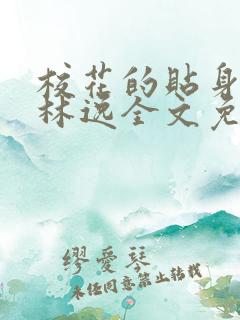 校花的贴身
林逸全文免
缪爱琴
未经同意禁止转载